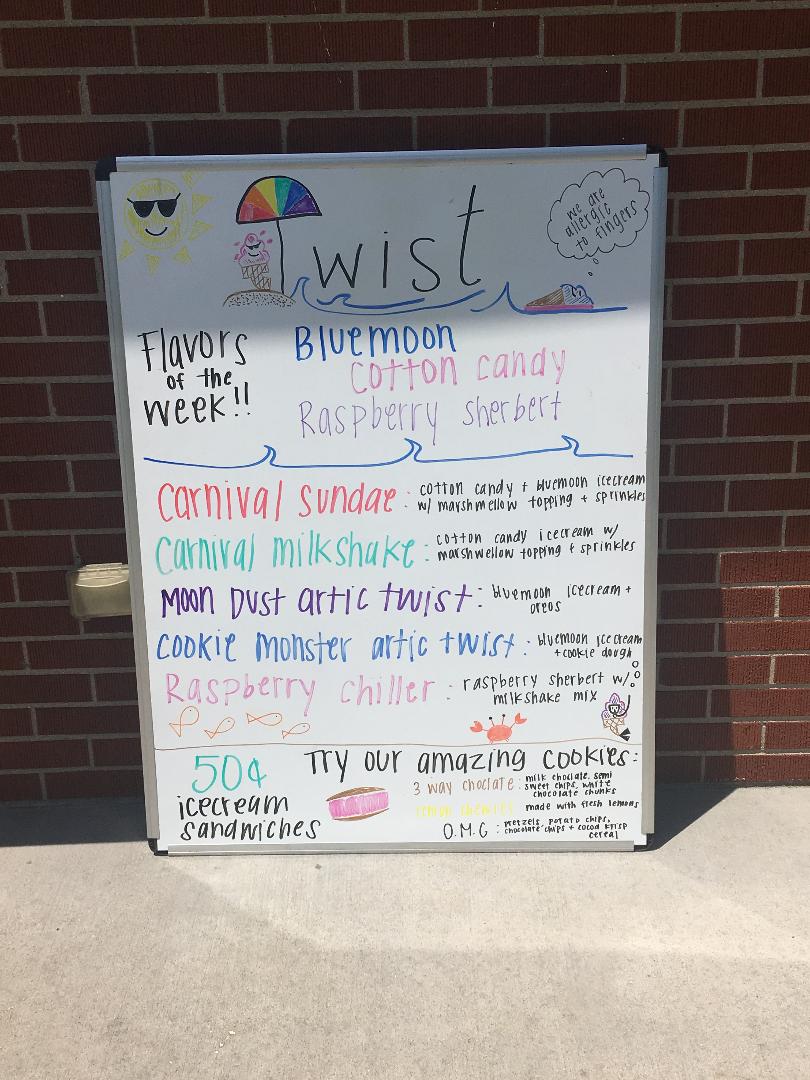 Twist
we are
allergic
to fingers
Flavors
of the
week!!
Bluemoon
Cotton candy
Raspberry sherbert
Carnival Sundae: cotton candy + bluemoon icecream
w/ marshmellow topping + sprinkles
Carnival milkshake: cotton candy icecream w/
marshwellow topping + sprinkles
Moon Dust artic twist: bluemoon icecream +
oreos
Cookie monster artic twist: bluemoon icecream
+ cookie dough
Raspberry chiller: raspberry sherbert w/
milkshake mix
50¢
icecream
sandwiches
Try our amazing cookies:
3 way choclate: milk choclate, semi
sweet chips, white
chocolate chunks
lemon chewies made with fresh lemons
O.M.G: pretzels, potato chips,
chocolate chips + cocoa krisp
cereal